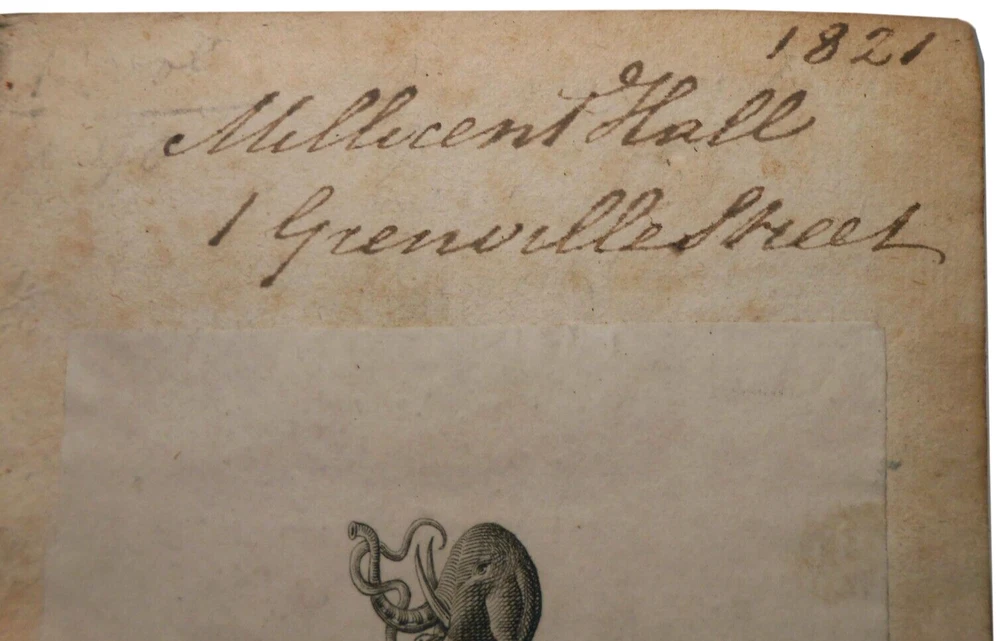 1821
Millicent Hall
1 Grenville Street